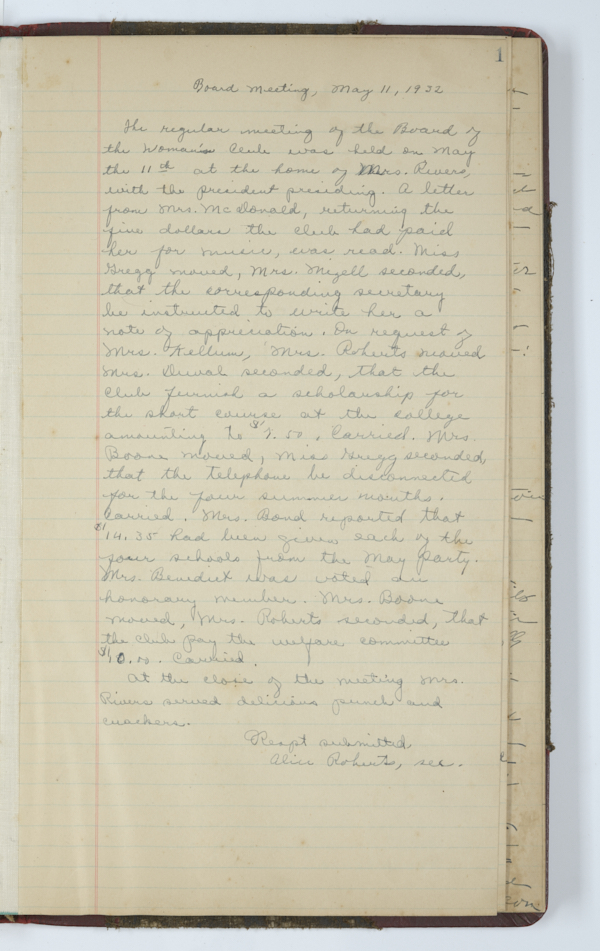 1
Board Meeting, May 11, 1932
The regular meeting of the Board of
the Woman's Club was held on May
the 11th at the home of Mrs. Rivers,
with the president presiding. A letter
from Mrs. McDonald, returning the
five dollars the club had paid
her for music, was read. Miss
Gregg moved, Mrs. Mizell seconded,
that the corresponding secretary
be instructed to write her a
note of appreciation. On request of
Mrs. Kellum, Mrs. Roberts moved
Mrs. Duval seconded, that the
club furnish a scholarship for
the short course at the college
amounting to . Carried. Mrs.
Boone moved, Miss Gregg seconded,
that the telephone be disconnected
for the four summer months.
Carried. Mrs. Bond reported that
$14.35 had been given each of the
four schools from the May party.
Mrs. Benedict was voted an
honorary member. Mrs. Boone
moved, Mrs. Roberts seconded, that
the club pay the welfare committee
$10.00. Carried.
At the close of the meeting Mrs.
Rivers served delicious punch and
crackers.
Respt submitted
Alice Roberts, sec.